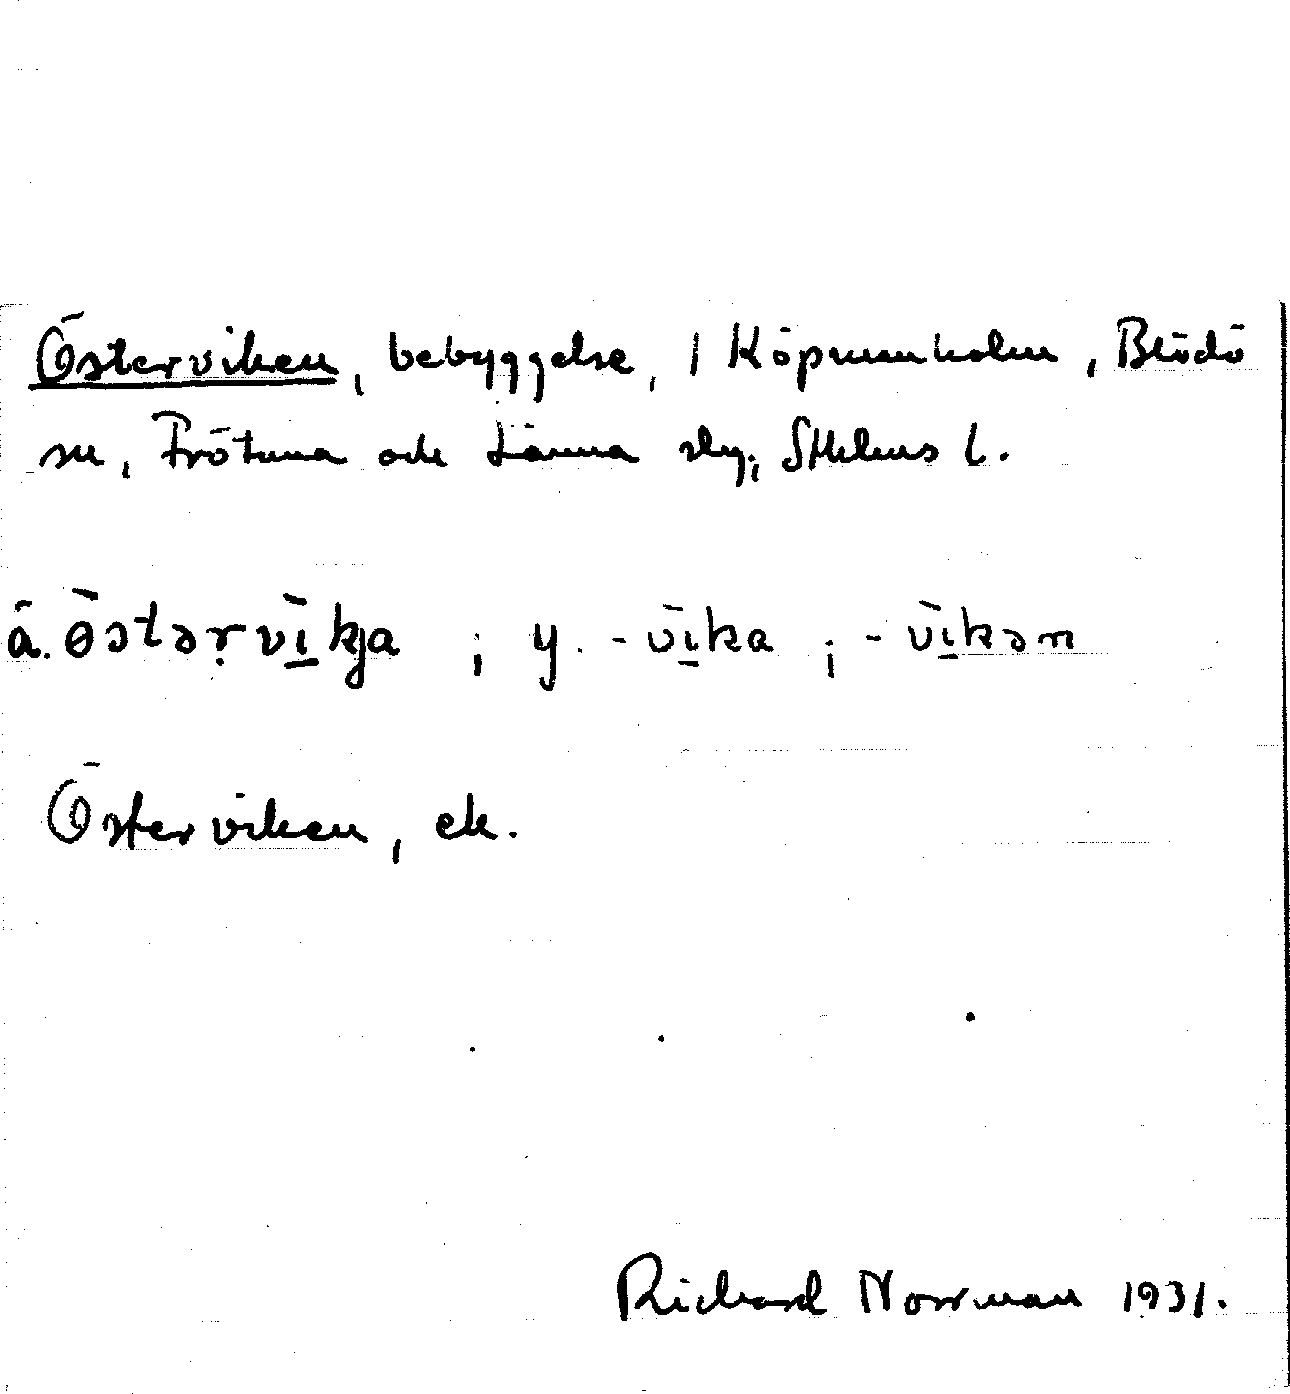 Österviken, bebyggelse, i Köpmanholm, Blidö
sn, Frötuna och Länna slg, Sthlms l.
ä. ɵ̀stərvìkja ; y. -vìka ; -vìkən
Österviken, ek.
Richard Norrman 1931.